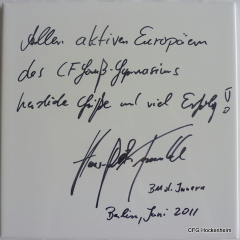 Allen aktiven Europäern
des CFGauß-Gymnasiums
herzliche Grüße und viel Erfolg!
BM d. Innern
Berlin, Juni 2011
CFG Hockenheim